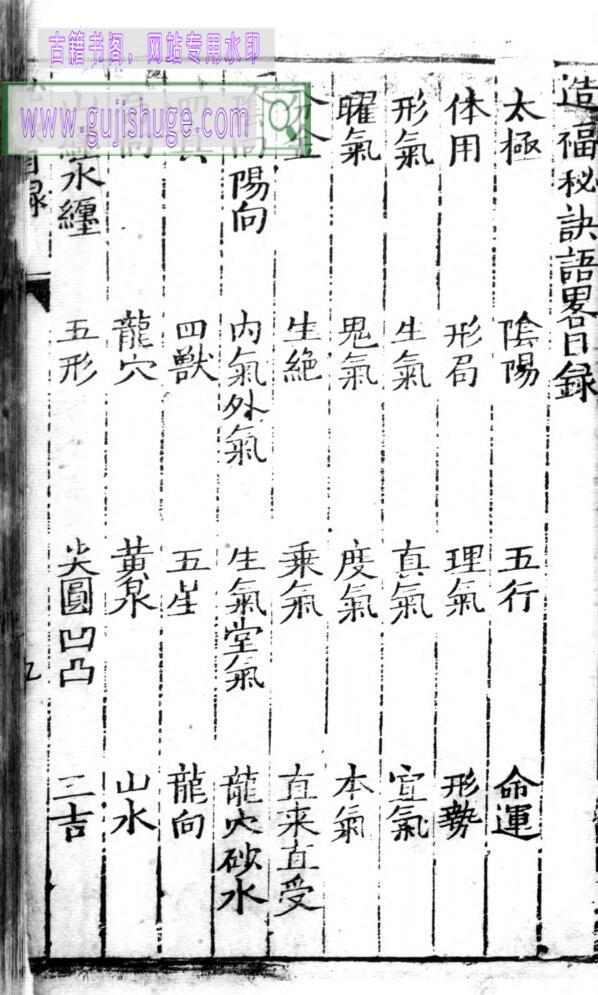 古籍书阁，网站专用水印
www.gujishuge.com
造福秘訣語畧目録
太極 陰陽 五行 命運
体用 形局 理氣 形勢
形氣 生氣 真氣 宜氣
曜氣 鬼氣 度氣 本氣
生絶 乘氣 直来直受
陽向 内氣外氣 生氣堂氣 龍穴砂水
四獸 五星 龍向
龍穴 黄泉 山水
水纏 五形 尖圓凹凸 三吉
目録
九